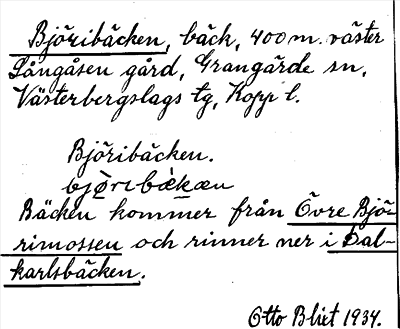 Björibäcken, bäck, 400 m. väster
Långåsen gård, Grangärde sn,
Västerbergslags tg, Kopp l.
Björibäcken.
Bäcken kommer från Övre Bjö-
rimossen och rinner ner i Dal-
karlsbäcken.
Otto Blixt 1934.